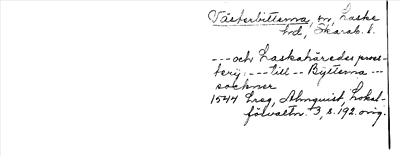 Västerbitterna, sn, Laske
hd, Skarab. l.
---och Laskahäredes pros-
terij: --- till -- Bytterna ---
sockner
1544 Lreg, Almquist, Lokal-
förvaltn. 3, s. 192. orig.